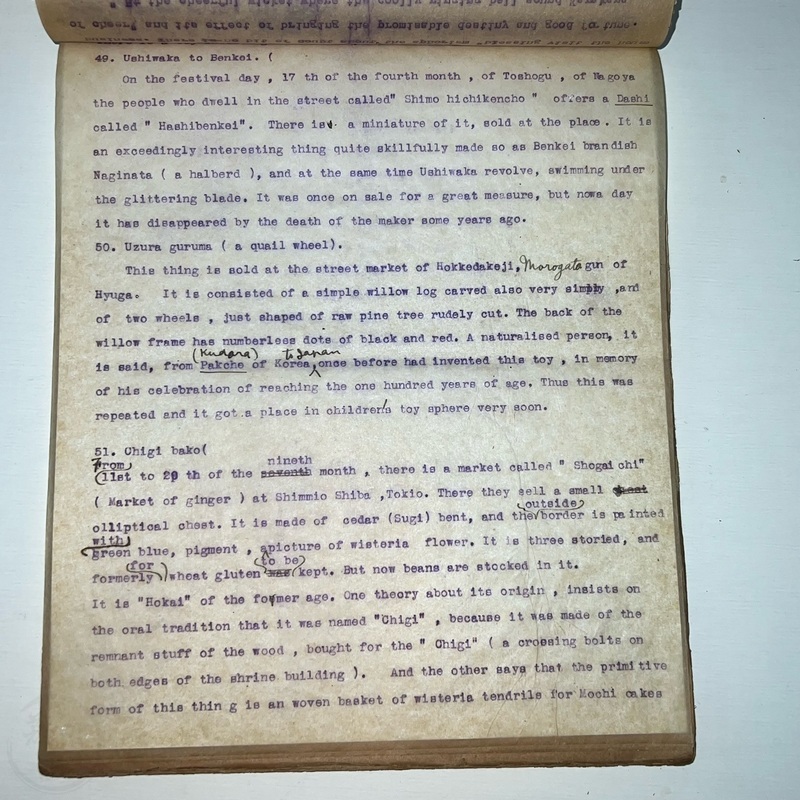 of cheer and its effect of bringing the promisable destiny and good fortune.
49. Ushiwaka to Benkei. (
On the festival day , 17 th of the fourth month , of Toshogu , of Nagoya
the people who dwell in the street called" Shimo hichikencho " offers a Dashi
called " Hashibenkei". There is a miniature of it, sold at the place. It is
an exceedingly interesting thing quite skillfully made so as Benkei brandish
Naginata ( a halberd ), and at the same time Ushiwaka revolve, swimming under
the glittering blade. It was once on sale for a great measure, but nowa day
it has disappeared by the death of the maker some years ago.
50. Uzura guruma ( a quail wheel).
This thing is sold at the street market of Hokkedakeji, Morogata gun of
Hyuga. It is consisted of a simple willow log carved also very simply ,and
of two wheels , just shaped of raw pine tree rudely cut. The back of the
willow frame has numberless dots of black and red. A naturalised person, it
(Kudara) to Japan
is said, from Pakche of Korea, once before had invented this toy , in memory
of his celebration of reaching the one hundred years of age. Thus this was
repeated and it got a place in children's toy sphere very soon.
51. Chigi bako(
From nineth
11st to 20 th of the seventh month , there is a market called " Shogai chi"
( Market of ginger ) at Shimmio Shiba ,Tokio. There they sell a small
outside
olliptical chest. It is made of cedar (Sugi) bent, and the border is painted
with
green blue, pigment , apicture of wisteria flower. It is three storied, and
for to be
formerly wheat gluten was kept. But now beans are stocked in it.
It is "Hokai" of the former age. One theory about its origin , insists on
the oral tradition that it was named "Chigi" , because it was made of the
remnant stuff of the wood , bought for the " Chigi" ( a crossing bolts on
both edges of the shrine building ). And the other says that the primitive
form of this thin g is an woven basket of wisteria tendrils for Mochi cakes